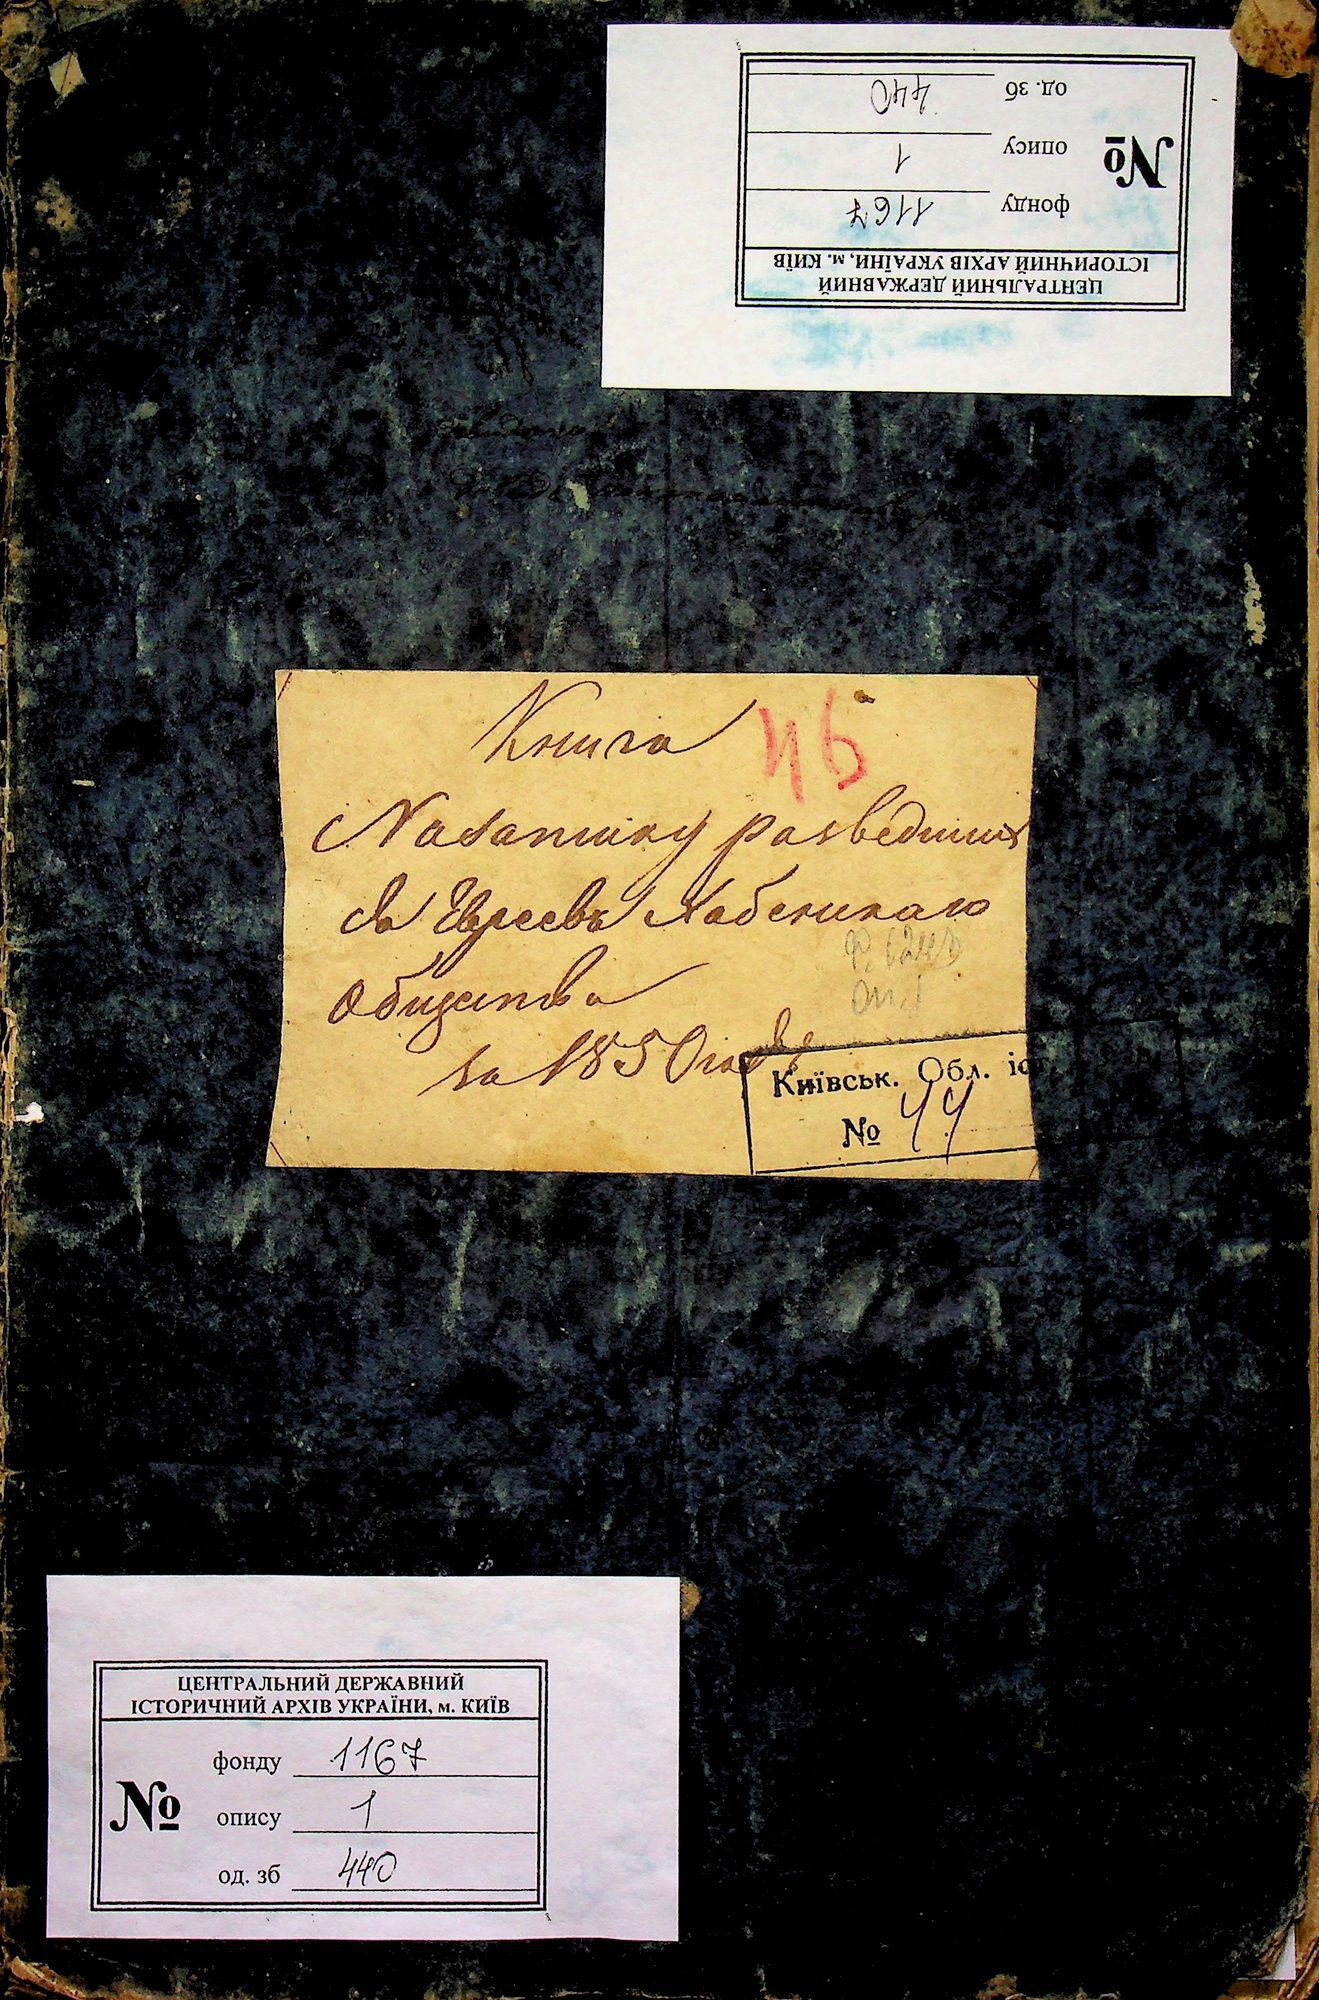 од. зб 440
опису 1
№
фонду 1167
ЦЕНТРАЛЬНИЙ ДЕРЖАВНИЙ
ІСТОРИЧНИЙ АРХІВ УКРАЇНИ, м. КИЇВ
Книга
46
разведших
Евреевъ Хабенскаго
Общества
за 1850 годъ
Київськ. Обл. іс
№ 44
ЦЕНТРАЛЬНИЙ ДЕРЖАВНИЙ
ІСТОРИЧНИЙ АРХІВ УКРАЇНИ, м. КИЇВ
фонду 1167
№
опису 1
од. зб 440